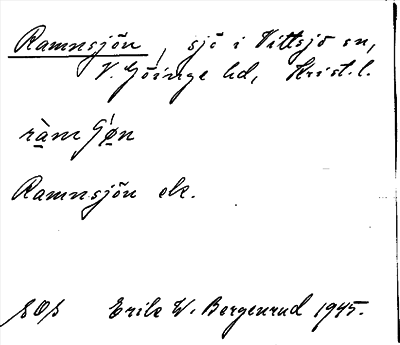 Ramnsjön, sjö i Vittsjö sn,
V. Göinge hd, Krist. l.
ràmʃø̀n
Ramnsjön ek.
SOS Erik W. Bergenrud 1945.